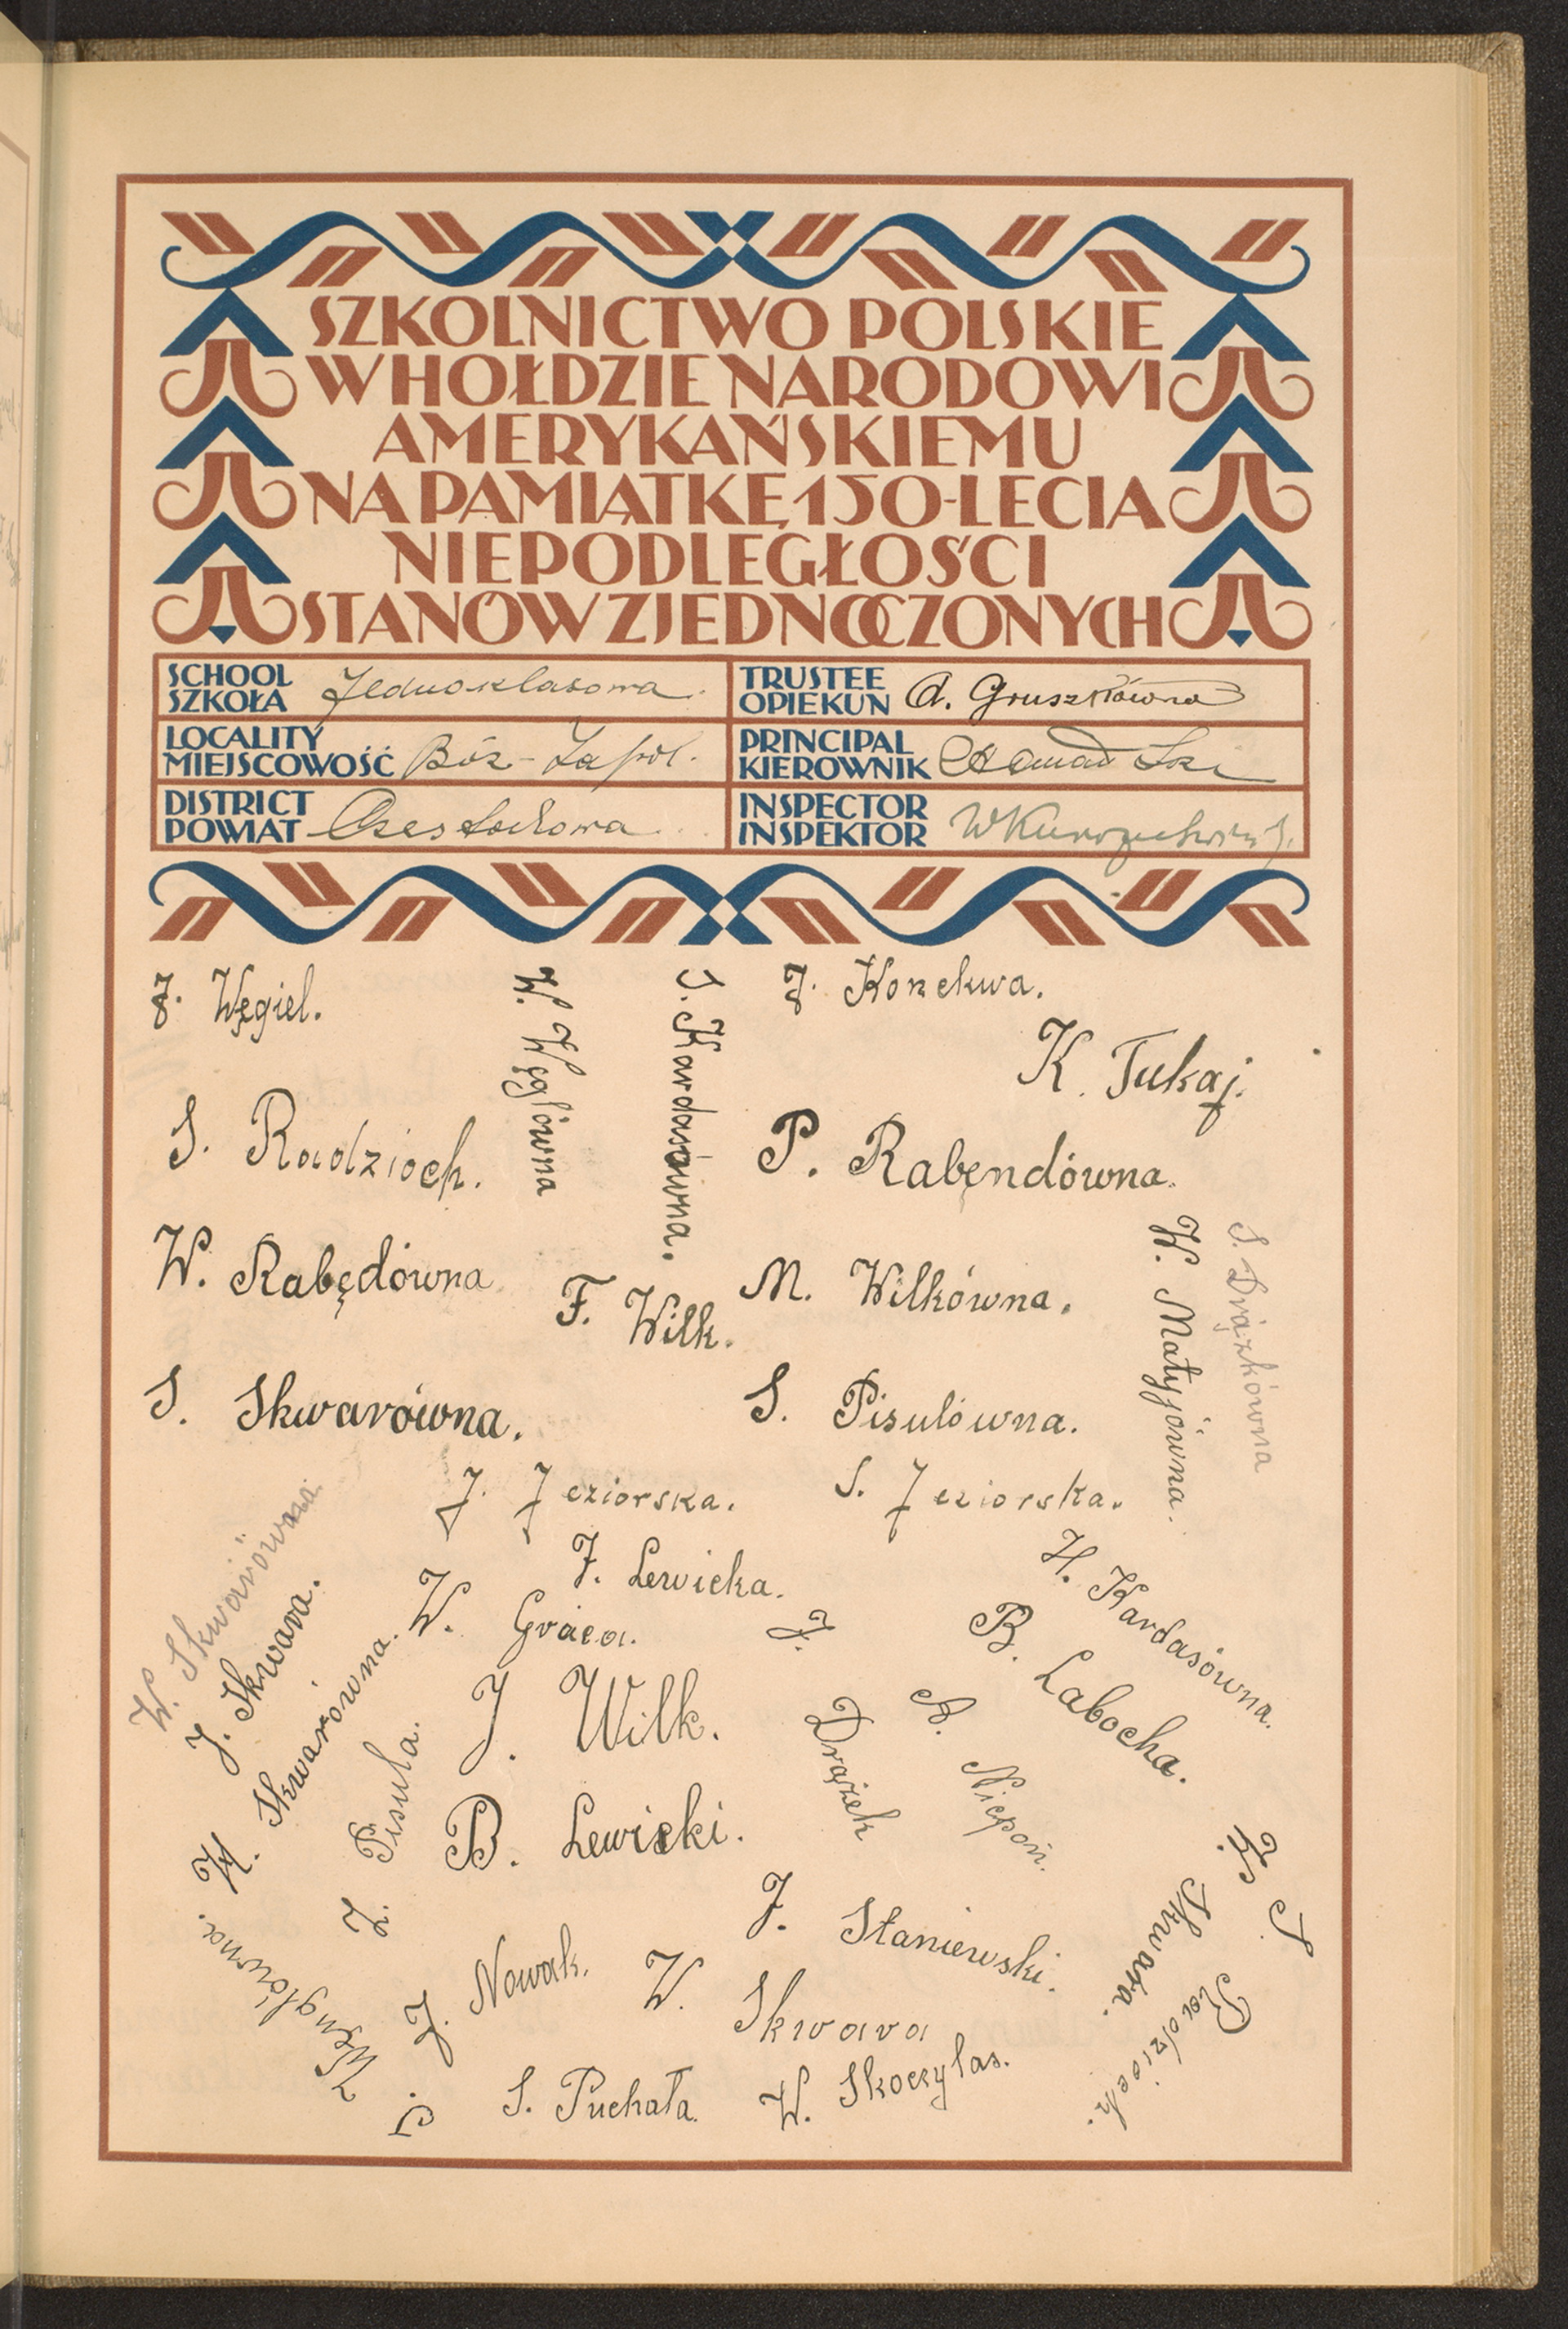 SZKOLNICTWO POLSKIE
W HOŁDZIE NARODOWI
AMERYKAŃSKIEMU
NA PAMIĄTKĘ 150-LECIA
NIEPODLEGŁOŚCI
STANÓW ZJEDNOCZONYCH
SCHOOL
SZKOŁA Jednoklasowa.
TRUSTEE
OPIEKUN A. Gruszkówna
LOCALITY
MIEJSCOWOŚĆ Bór-Zapol.
PRINCIPAL
KIEROWNIK
DISTRICT
POWIAT Częstochowa
INSPECTOR
INSPEKTOR
J. Węgiel.
W. Węglówna
J. Kardasówna.
J. Konekwa.
K. Tukaj.
S. Radzioch.
P. Rabęndówna.
W. Rabędówna
F. Wilk.
M. Wilkówna.
W. Matyjówna.
S. Drążkówna
S. Skwarówna.
S. Pisulówna.
J. Jeziorska.
S. Jeziorska.
W. Skwarówna
J. Skwara.
H. Skwarówna.
J. Lewicka.
W. Graca.
J. Drążek
H. Kardasówna.
B. Labocha.
J. Wilk.
A. Niepoń.
Z. Pisula.
B. Lewicki.
J. Staniewski.
Z. Skwara.
S. Radzioch.
S. Węnglówna.
Z. Nowak.
W. Skwara
S. Puchała.
W. Skoczylas.